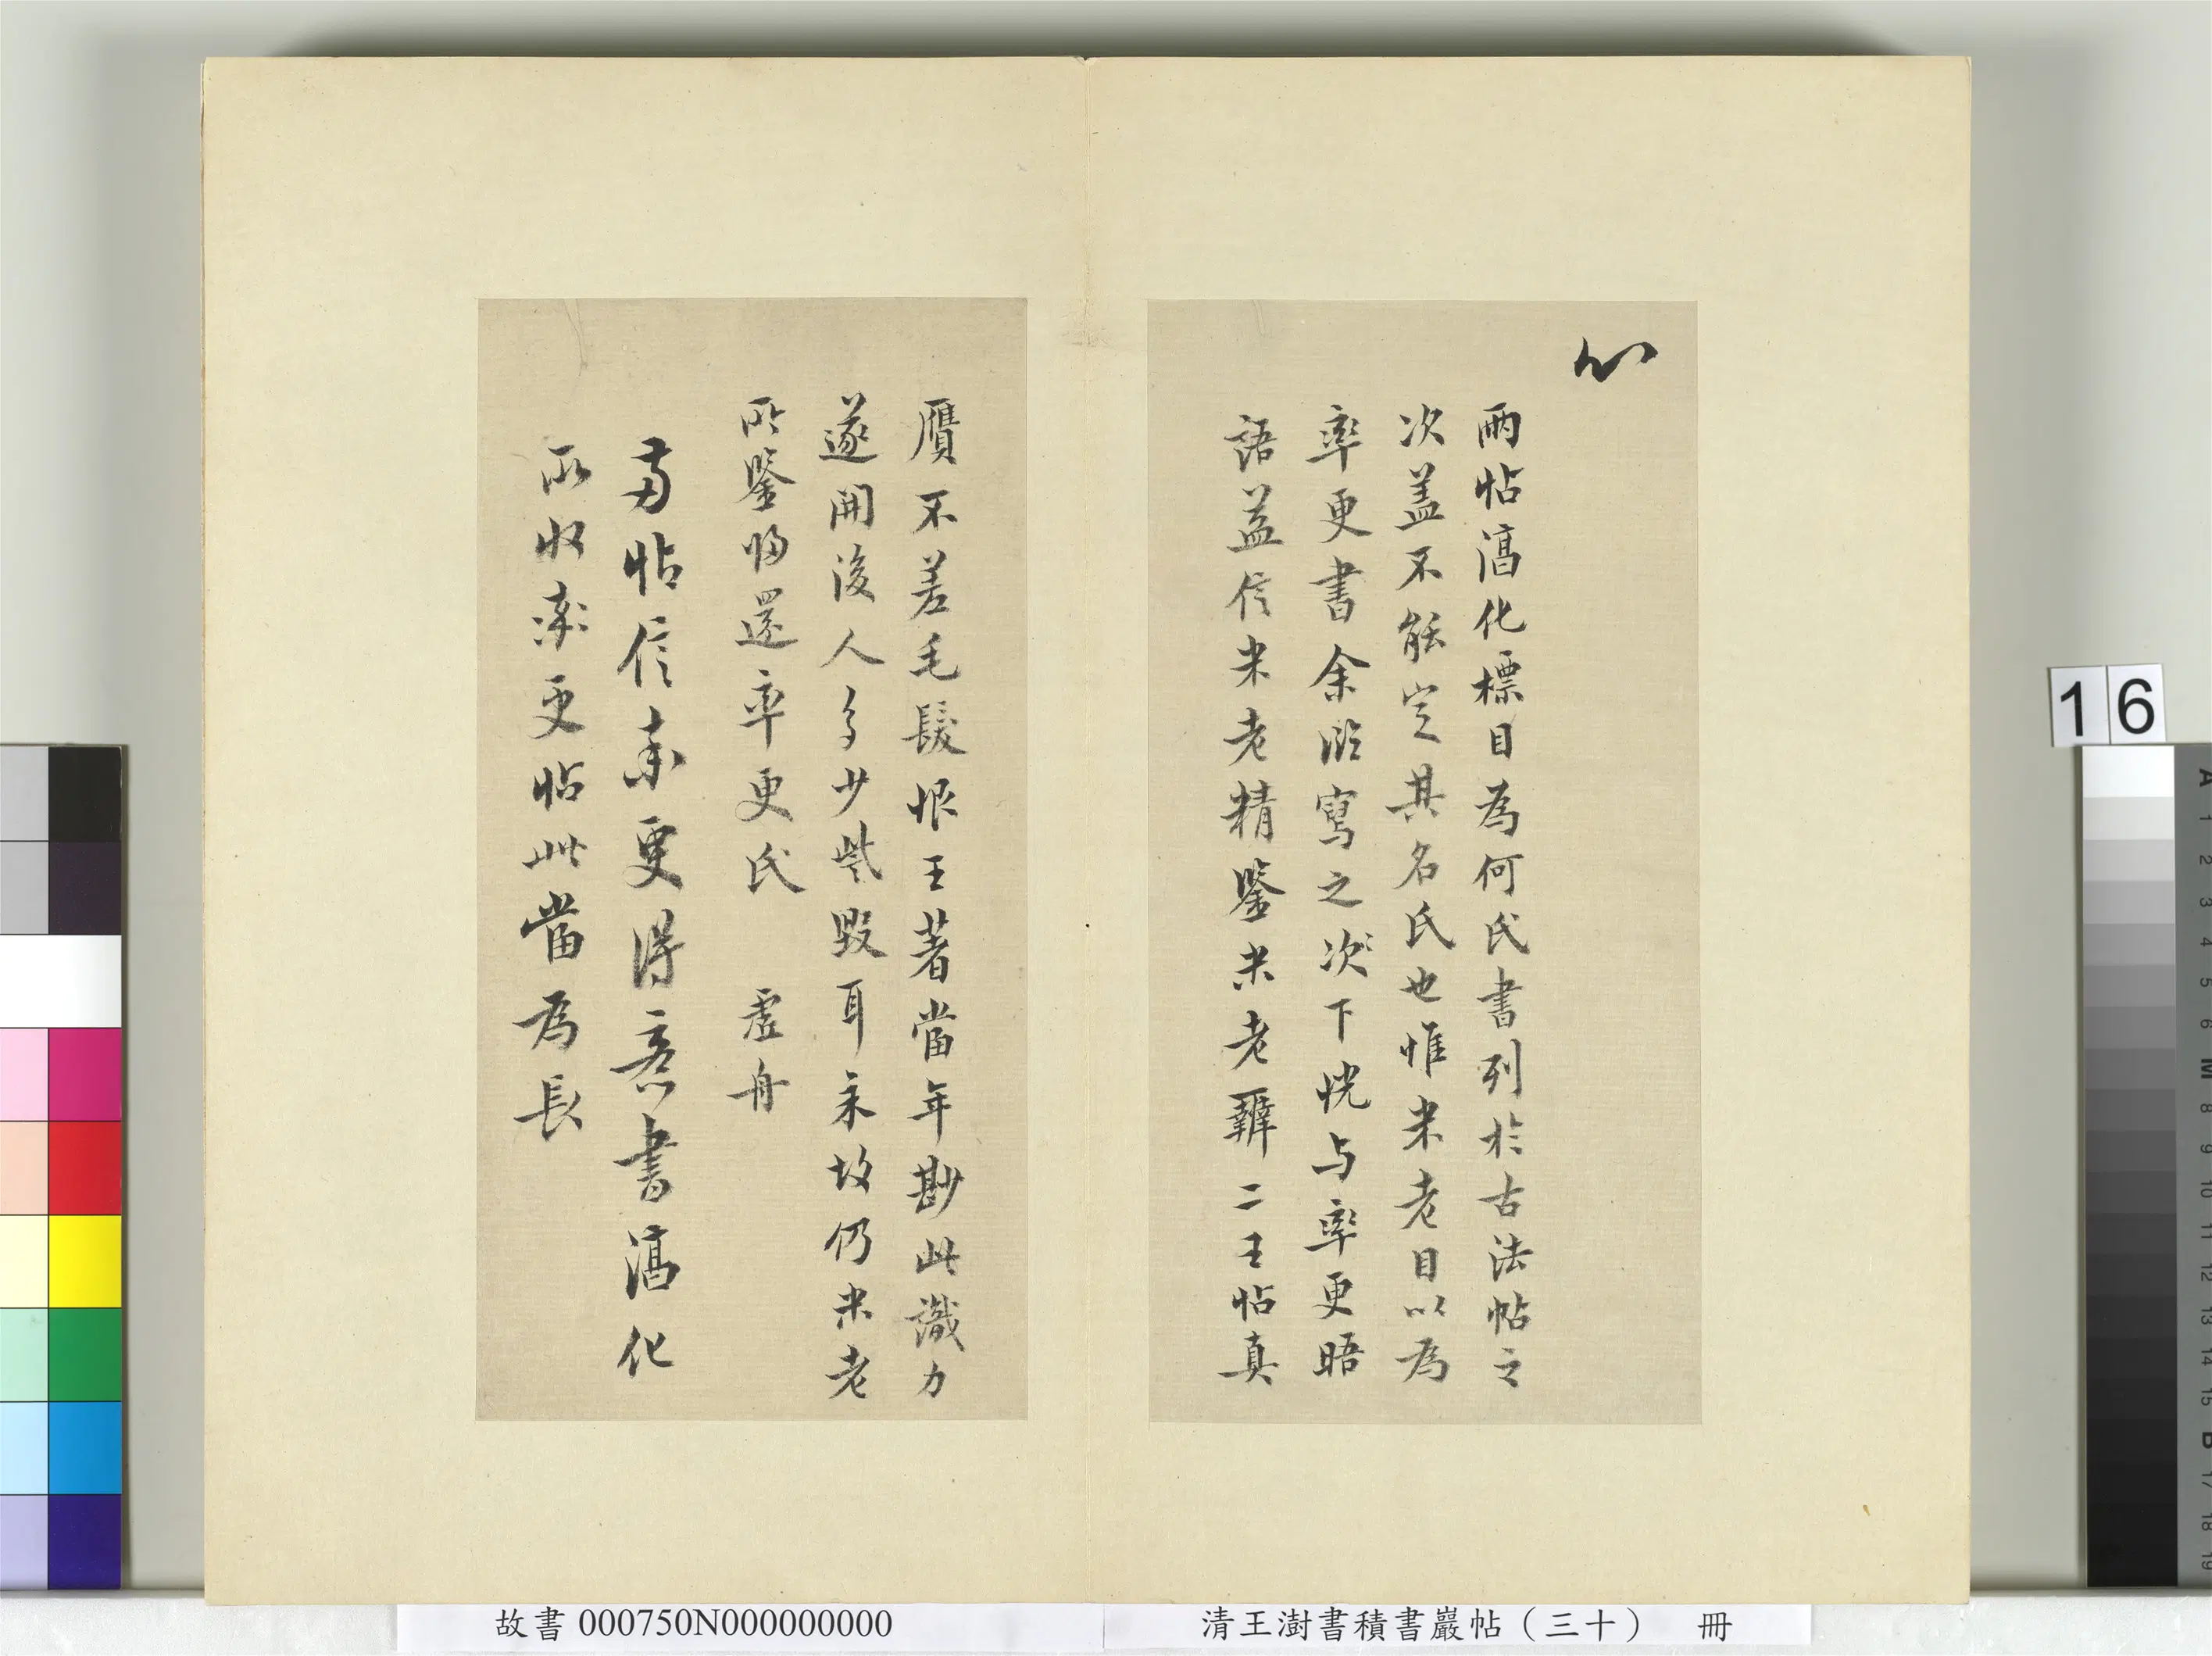 心
兩帖淳化標目為何氏書列於古法帖之
次蓋不能定其名氏也惟米老目以為
率更書余臨寫之次下恍与率更晤
語益信米老精鑒米老辨二王帖真
贋不差毛髮恨王著當年尠此識力
遂開後人多少訾毀耳余故仍米老
所鑒歸還率更氏 虛舟
兩帖信率更得意書淳化
所收率更帖此當為長
16
故書000750N000000000
清王澍書積書巖帖（三十） 冊